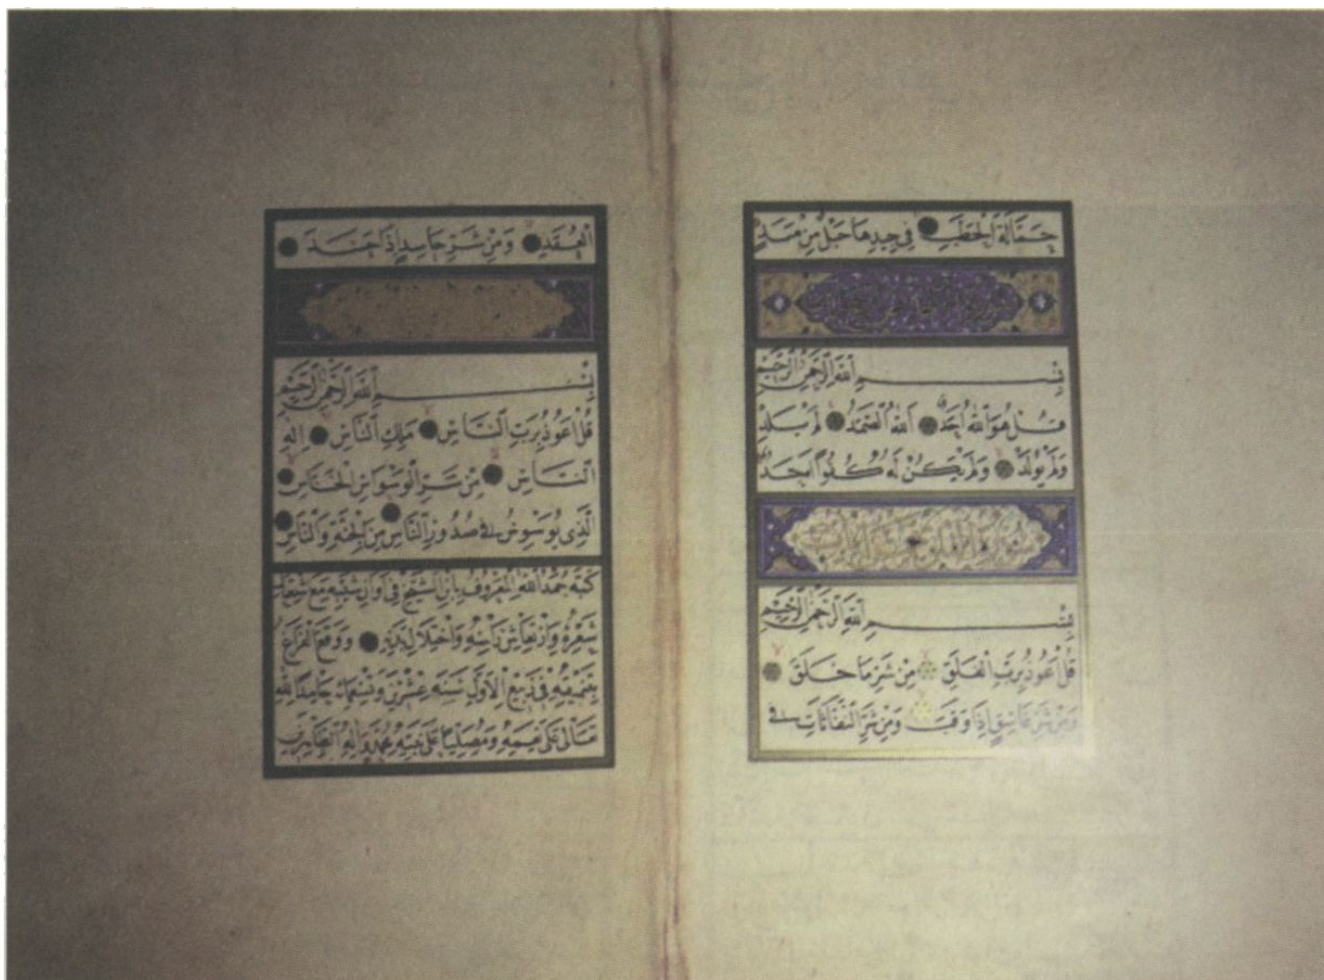 حَمَّالَةَ الْحَطَبِ فِي جِيدِهَا حَبْلٌ مِنْ مَسَدٍ
بِسْمِ اللَّهِ الرَّحْمَنِ الرَّحِيمِ
قُلْ هُوَ اللَّهُ أَحَدٌ اَللَّهُ الصَّمَدُ لَمْ يَلِدْ
وَلَمْ يُولَدْ وَلَمْ يَكُنْ لَهُ كُفُوًا أَحَدٌ
بِسْمِ اللَّهِ الرَّحْمَنِ الرَّحِيمِ
قُلْ اَعُوذُ بِرَبِّ الْفَلَقِ مِنْ شَرِّ مَا خَلَقَ
وَمِنْ شَرِّ غَاسِقٍ إِذَا وَقَبَ وَمِنْ شَرِّ النَّفَّاثَاتِ فِي
الْعُقَدِ وَمِنْ شَرِّ حَاسِدٍ إِذَا حَسَدَ
بِسْمِ اللَّهِ الرَّحْمَنِ الرَّحِيمِ
قُلْ اَعُوذُ بِرَبِّ النَّاسِ مَلِكِ النَّاسِ اِلَهِ
النَّاسِ مِنْ شَرِّ الْوَسْوَاسِ الْخَنَّاسِ
الَّذِي يُوَسْوِسُ فِي صُدُورِ النَّاسِ مِنَ الْجِنَّةِ وَالنَّاسِ
كَتَبَهُ حَمْدُ اللَّهِ الْمَعْرُوفُ بِابْنِ الشَّيْخِ فِي اَوَانِ شَيْبِهِ مَعَ
شَعْرِهِ وَارْتِعَاشِ رَأْسِهِ وَاخْتِلَالِ وَوَقَعَ الْفَرَاغُ
فِي رَبِيعِ الْاَوَّلِ سَنَةَ عِشْرِينَ وَتِسْعِمِائَةٍ حَامِدًا لِلَّهِ
تَعَالَى عَلَى نِعَمِهِ وَمُصَلِّيًا عَلَى نَبِيِّهِ مُحَمَّدٍ وَآلِهِ